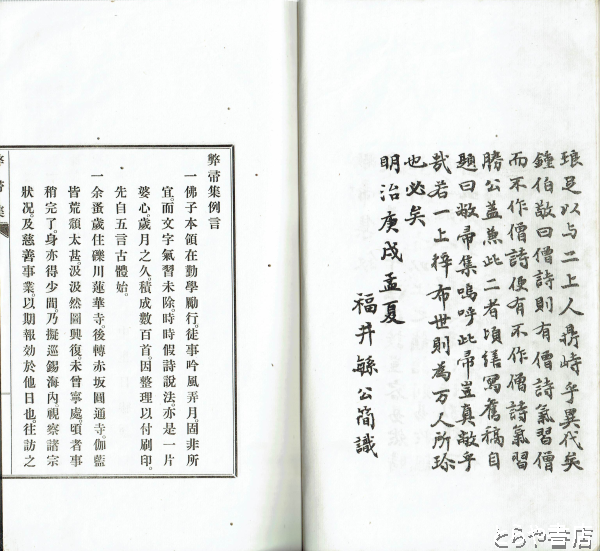 琅足以与二上人鼎峙乎異代矣
鍾伯敬曰僧詩則有僧詩氣習僧
而不作僧詩便有不作僧詩氣習
勝公蓋兼此二者頃繕寫舊稿自
題曰敝帚集嗚呼此帚豈真敝乎
哉若一上梓布世則為万人所珍
也必矣
明治庚戌孟夏
福井繇公簡識
弊帚集例言
一佛子本領在勤學勵行。徒事吟風弄月。固非所
宜。而文字氣習未除。時時假詩說法。亦是一片
婆心。歲月之久。積成數百首。因整理以付刷印。
先自五言古體始。
一余蚤歲住礫川蓮華寺。後轉赤坂圓通寺。伽藍
皆荒頽太甚。汲汲然圖興復。未曾寧處。頃者事
稍完了。身亦得少閒。乃擬巡錫海內視察諸宗
狀况。及慈善事業。以期報効於他日也。往訪之
弊帚集
とらや書店